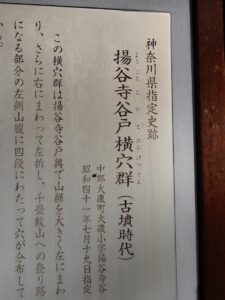 神奈川県指定史跡
ようこくじやとおうけつぐん
揚谷寺谷戸横穴群(古墳時代)
中郡大磯町大磯小字揚谷寺谷
昭和四十一年七月十九日指定
この横穴群は揚谷寺谷戸奥で山裾を大きく左にまわ
り、さらに右にまわって左折し、千畳敷山への登り路
になる部分の左側山腹に四段にわたって穴が分布して